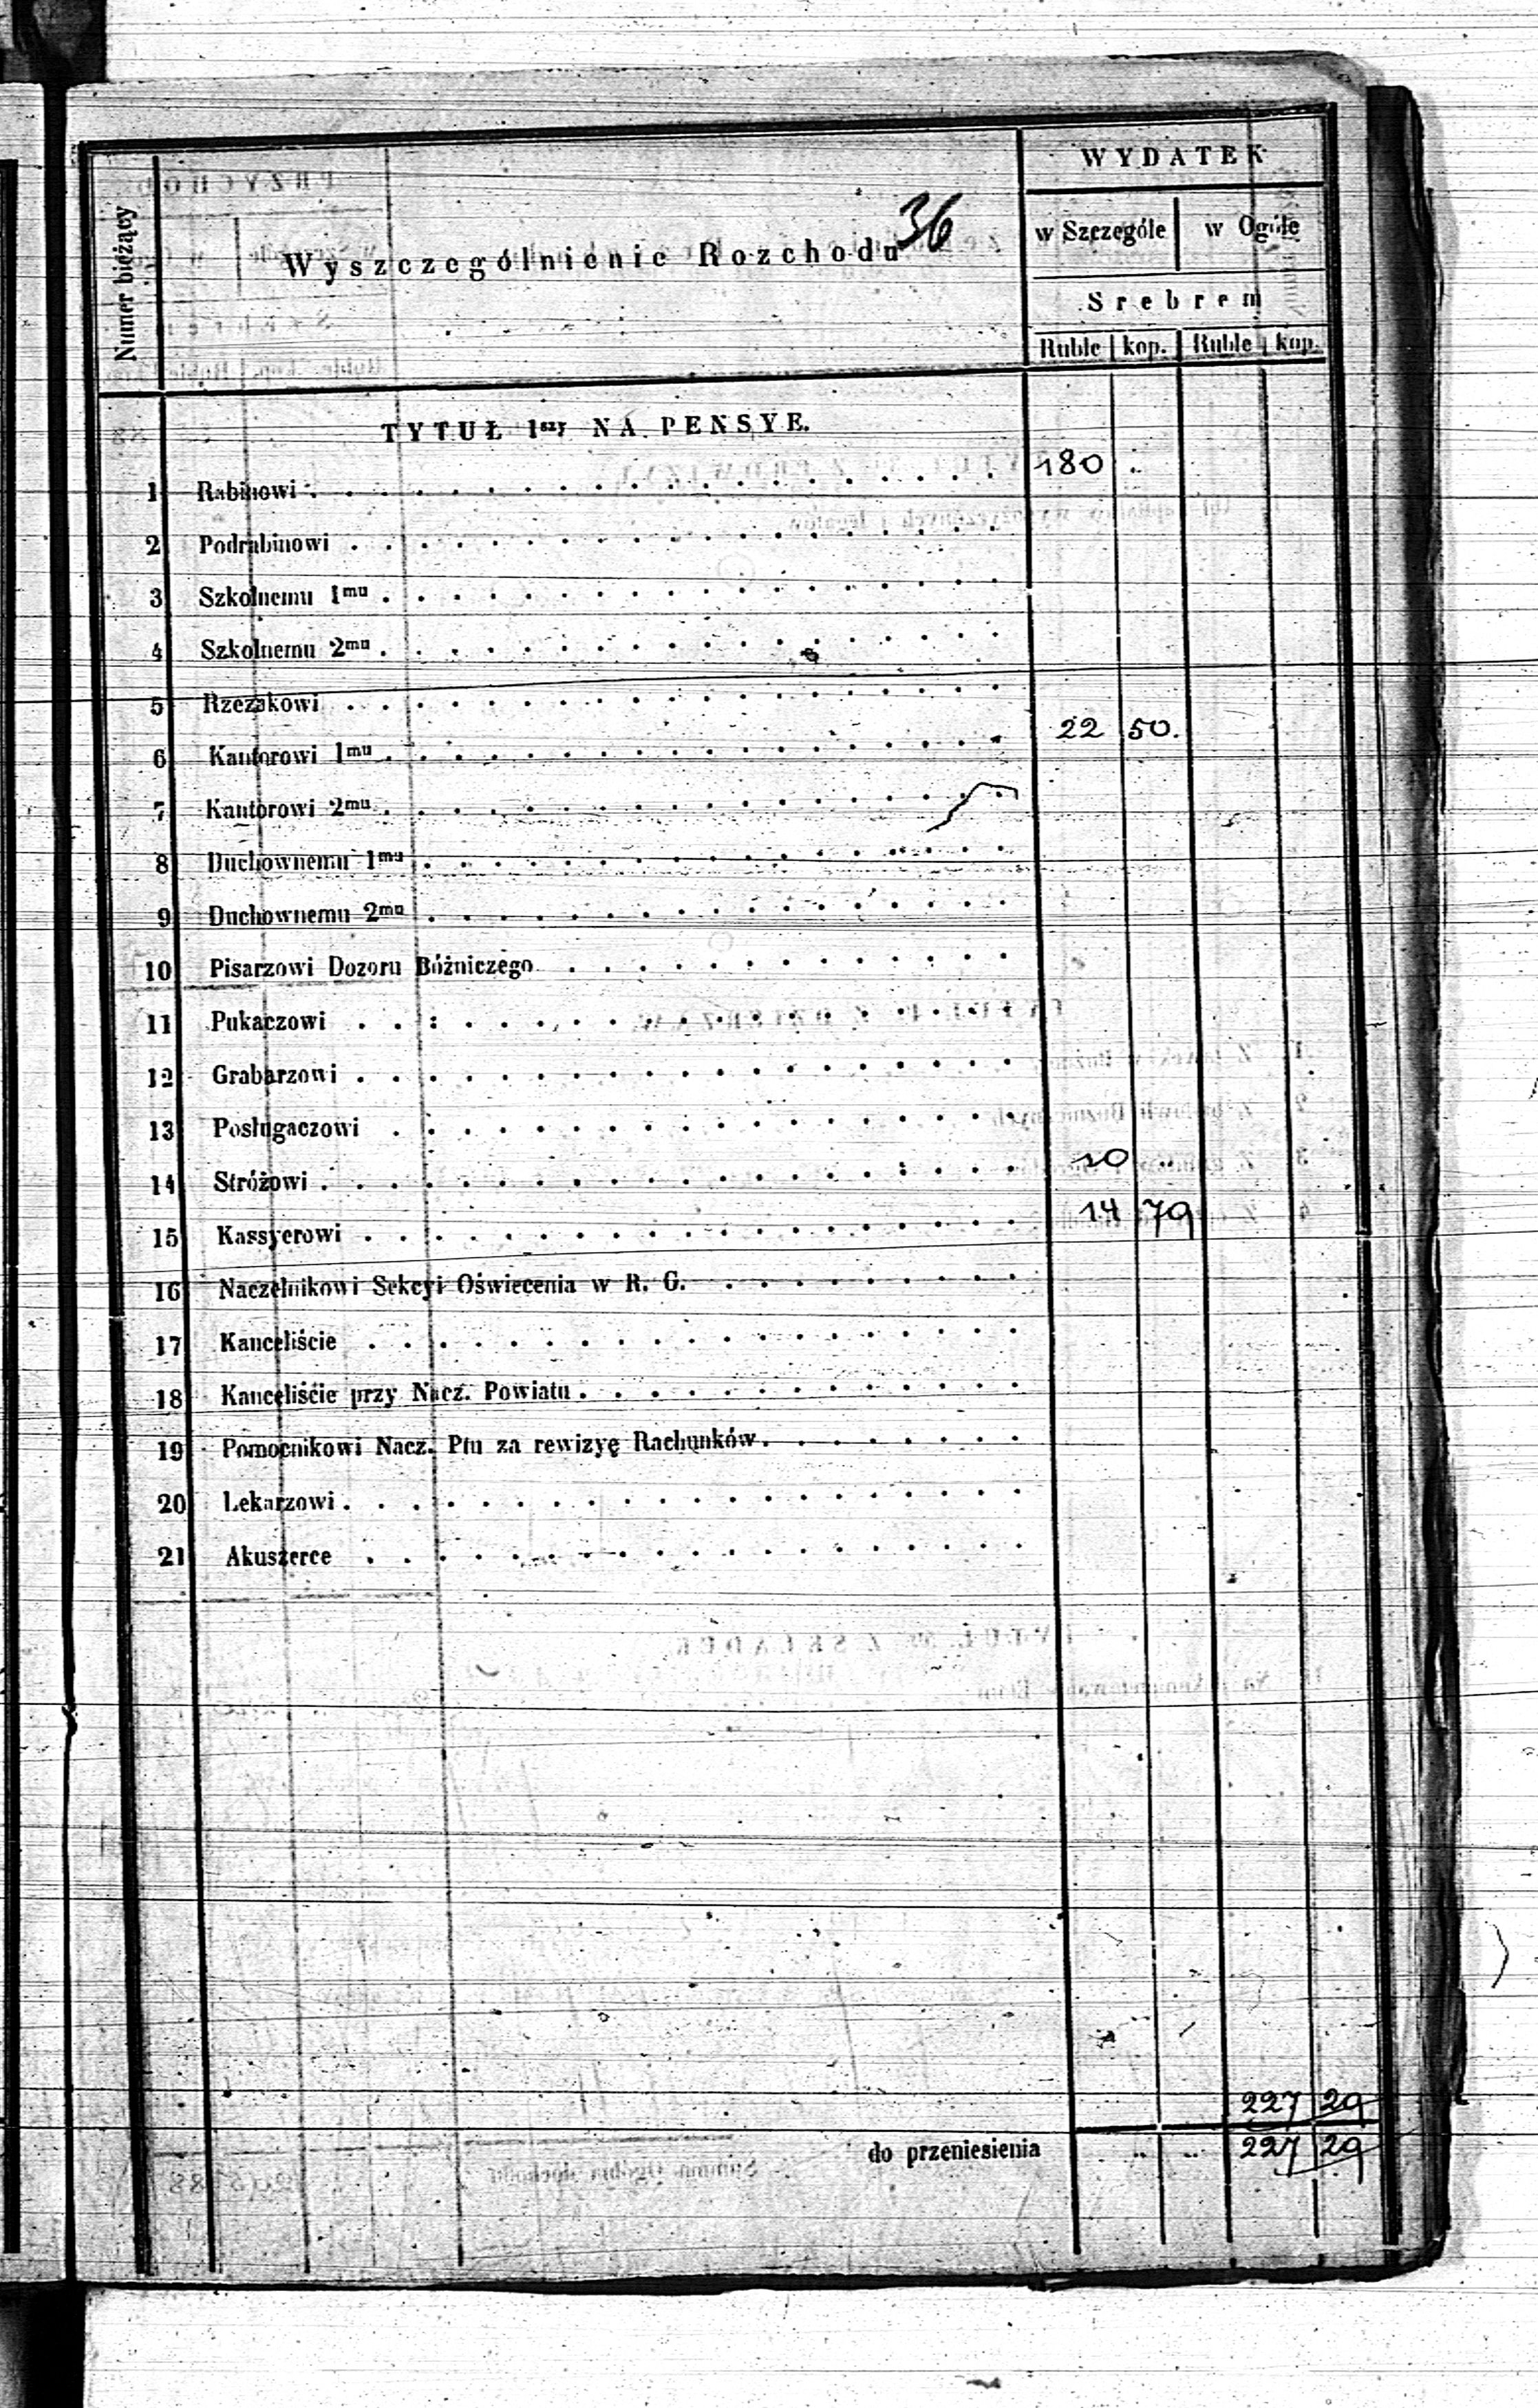 WYDATEK
Numer bieżący
Wyszczególnienie Rozchodu 36
w Szczególe w Ogóle
Srebrem
Ruble kop. Ruble kop.
TYTUŁ 1szy NA PENSYE.
1 Rabinowi 180 ..
2 Podrabinowi
3 Szkolnemu 1mu
4 Szkolnemu 2mu
5 Rzezakowi
6 Kantorowi 1mu 22 50.
7 Kantorowi 2mu
8 Duchownemu 1mu
9 Duchownemu 2mu
10 Pisarzowi Dozoru Bóżniczego
11 Pukaczowi
12 Grabarzowi
13 Posługaczowi
14 Stróżowi 10 ..
15 Kassyerowi 14 79
16 Naczelnikowi Sekcyi Oświecenia w R. G.
17 Kanceliście
18 Kanceliście przy Nacz. Powiatu
19 Pomocnikowi Nacz. Ptu za rewizyę Rachunków
20 Lekarzowi
21 Akuszerce
227 29
do przeniesienia .. .. 227 29